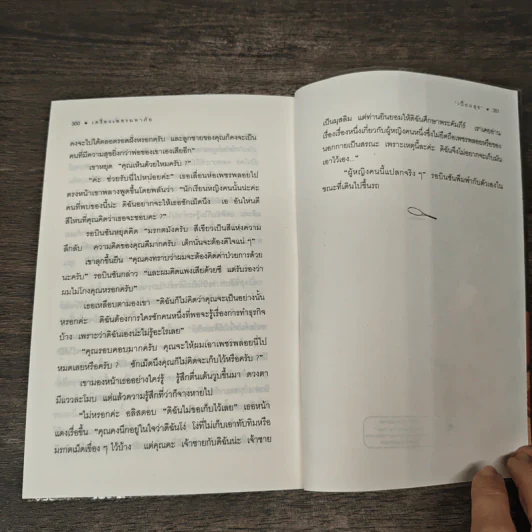 300 • เครื่องเพชรมหาภัย
คงจะไปได้ตลอดรอดฝั่งหรอกครับ และลูกชายของคุณก็คงจะเป็น
คนที่มีความสุขยิ่งกว่าพ่อของเขาเองเสียอีก"
เขาหยุด "คุณเห็นด้วยไหมครับ ?"
"ค่ะ ช่วยรับนี่ไปหน่อยค่ะ" เธอเลื่อนห่อเพชรพลอยไป
ตรงหน้าเขาพลางพูดขึ้นโดยพลันว่า "นักเรียนหญิงคนนั้นน่ะค่ะ
คนที่พบของนี้น่ะ ดิฉันอยากจะให้เธอซักเม็ดนึง เอ อันไหนดี
สีไหนที่คุณคิดว่าเธอจะชอบคะ ?"
รอบินซันหยุดคิด "มรกตมังครับ สีเขียวเป็นสีแห่งความ
ลึกลับ ความคิดของคุณดีมากครับ เด็กนั่นจะต้องดีใจแน่ ๆ"
เขาลุกขึ้นยืน "คุณคงทราบว่าผมจะต้องคิดค่าป่วยการด้วย
นะครับ" รอบินซันกล่าว "และผมคิดแพงเสียด้วยซี แต่รับรองว่า
ผมไม่โกงคุณหรอกครับ"
เธอเหลือบตามองเขา "ดิฉันก็ไม่คิดว่าคุณจะเป็นอย่างนั้น
หรอกค่ะ ดิฉันต้องการใครซักคนหนึ่งที่พอจะรู้เรื่องการทำธุรกิจ
บ้าง เพราะว่าดิฉันเองน่ะไม่รู้อะไรเลย"
"คุณรอบคอบมากครับ คุณจะให้ผมเอาเพชรพลอยนี่ไป
หมดเลยหรือครับ ? ซักเม็ดนึงคุณก็ไม่คิดจะเก็บไว้หรือครับ ?"
เขามองหน้าเธออย่างใคร่รู้ รู้สึกตื่นเต้นวูบขึ้นมา ดวงตา
มีแววละโมบ แต่แล้วความรู้สึกที่ว่าก็จางหายไป
"ไม่หรอกค่ะ อลิสตอบ "ดิฉันไม่ขอเก็บไว้เลย" เธอหน้า
แดงเรื่อขึ้น "คุณคงนึกอยู่ในใจว่าดิฉันโง่ โง่ที่ไม่เก็บเอาทับทิมหรือ
มรกตเม็ดเขื่อง ๆ ไว้บ้าง แต่คุณคะ เจ้าชายกับดิฉันน่ะ เจ้าชาย
• 301
เป็นมุสลิม แต่ท่านยินยอมให้ดิฉันศึกษาพระคัมภีร์ เราเคยอ่าน
เรื่องเรื่องหนึ่งเกี่ยวกับผู้หญิงคนหนึ่งซึ่งไม่ยึดถือเพชรพลอยหรือของ
นอกกายเป็นสรณะ เพราะเหตุนี้ละค่ะ ดิฉันจึงไม่อยากจะเก็บมัน
เอาไว้เอง..."
"ผู้หญิงคนนี้แปลกจริง ๆ" รอบินซันพึมพำกับตัวเองใน
ขณะที่เดินไปขึ้นรถ